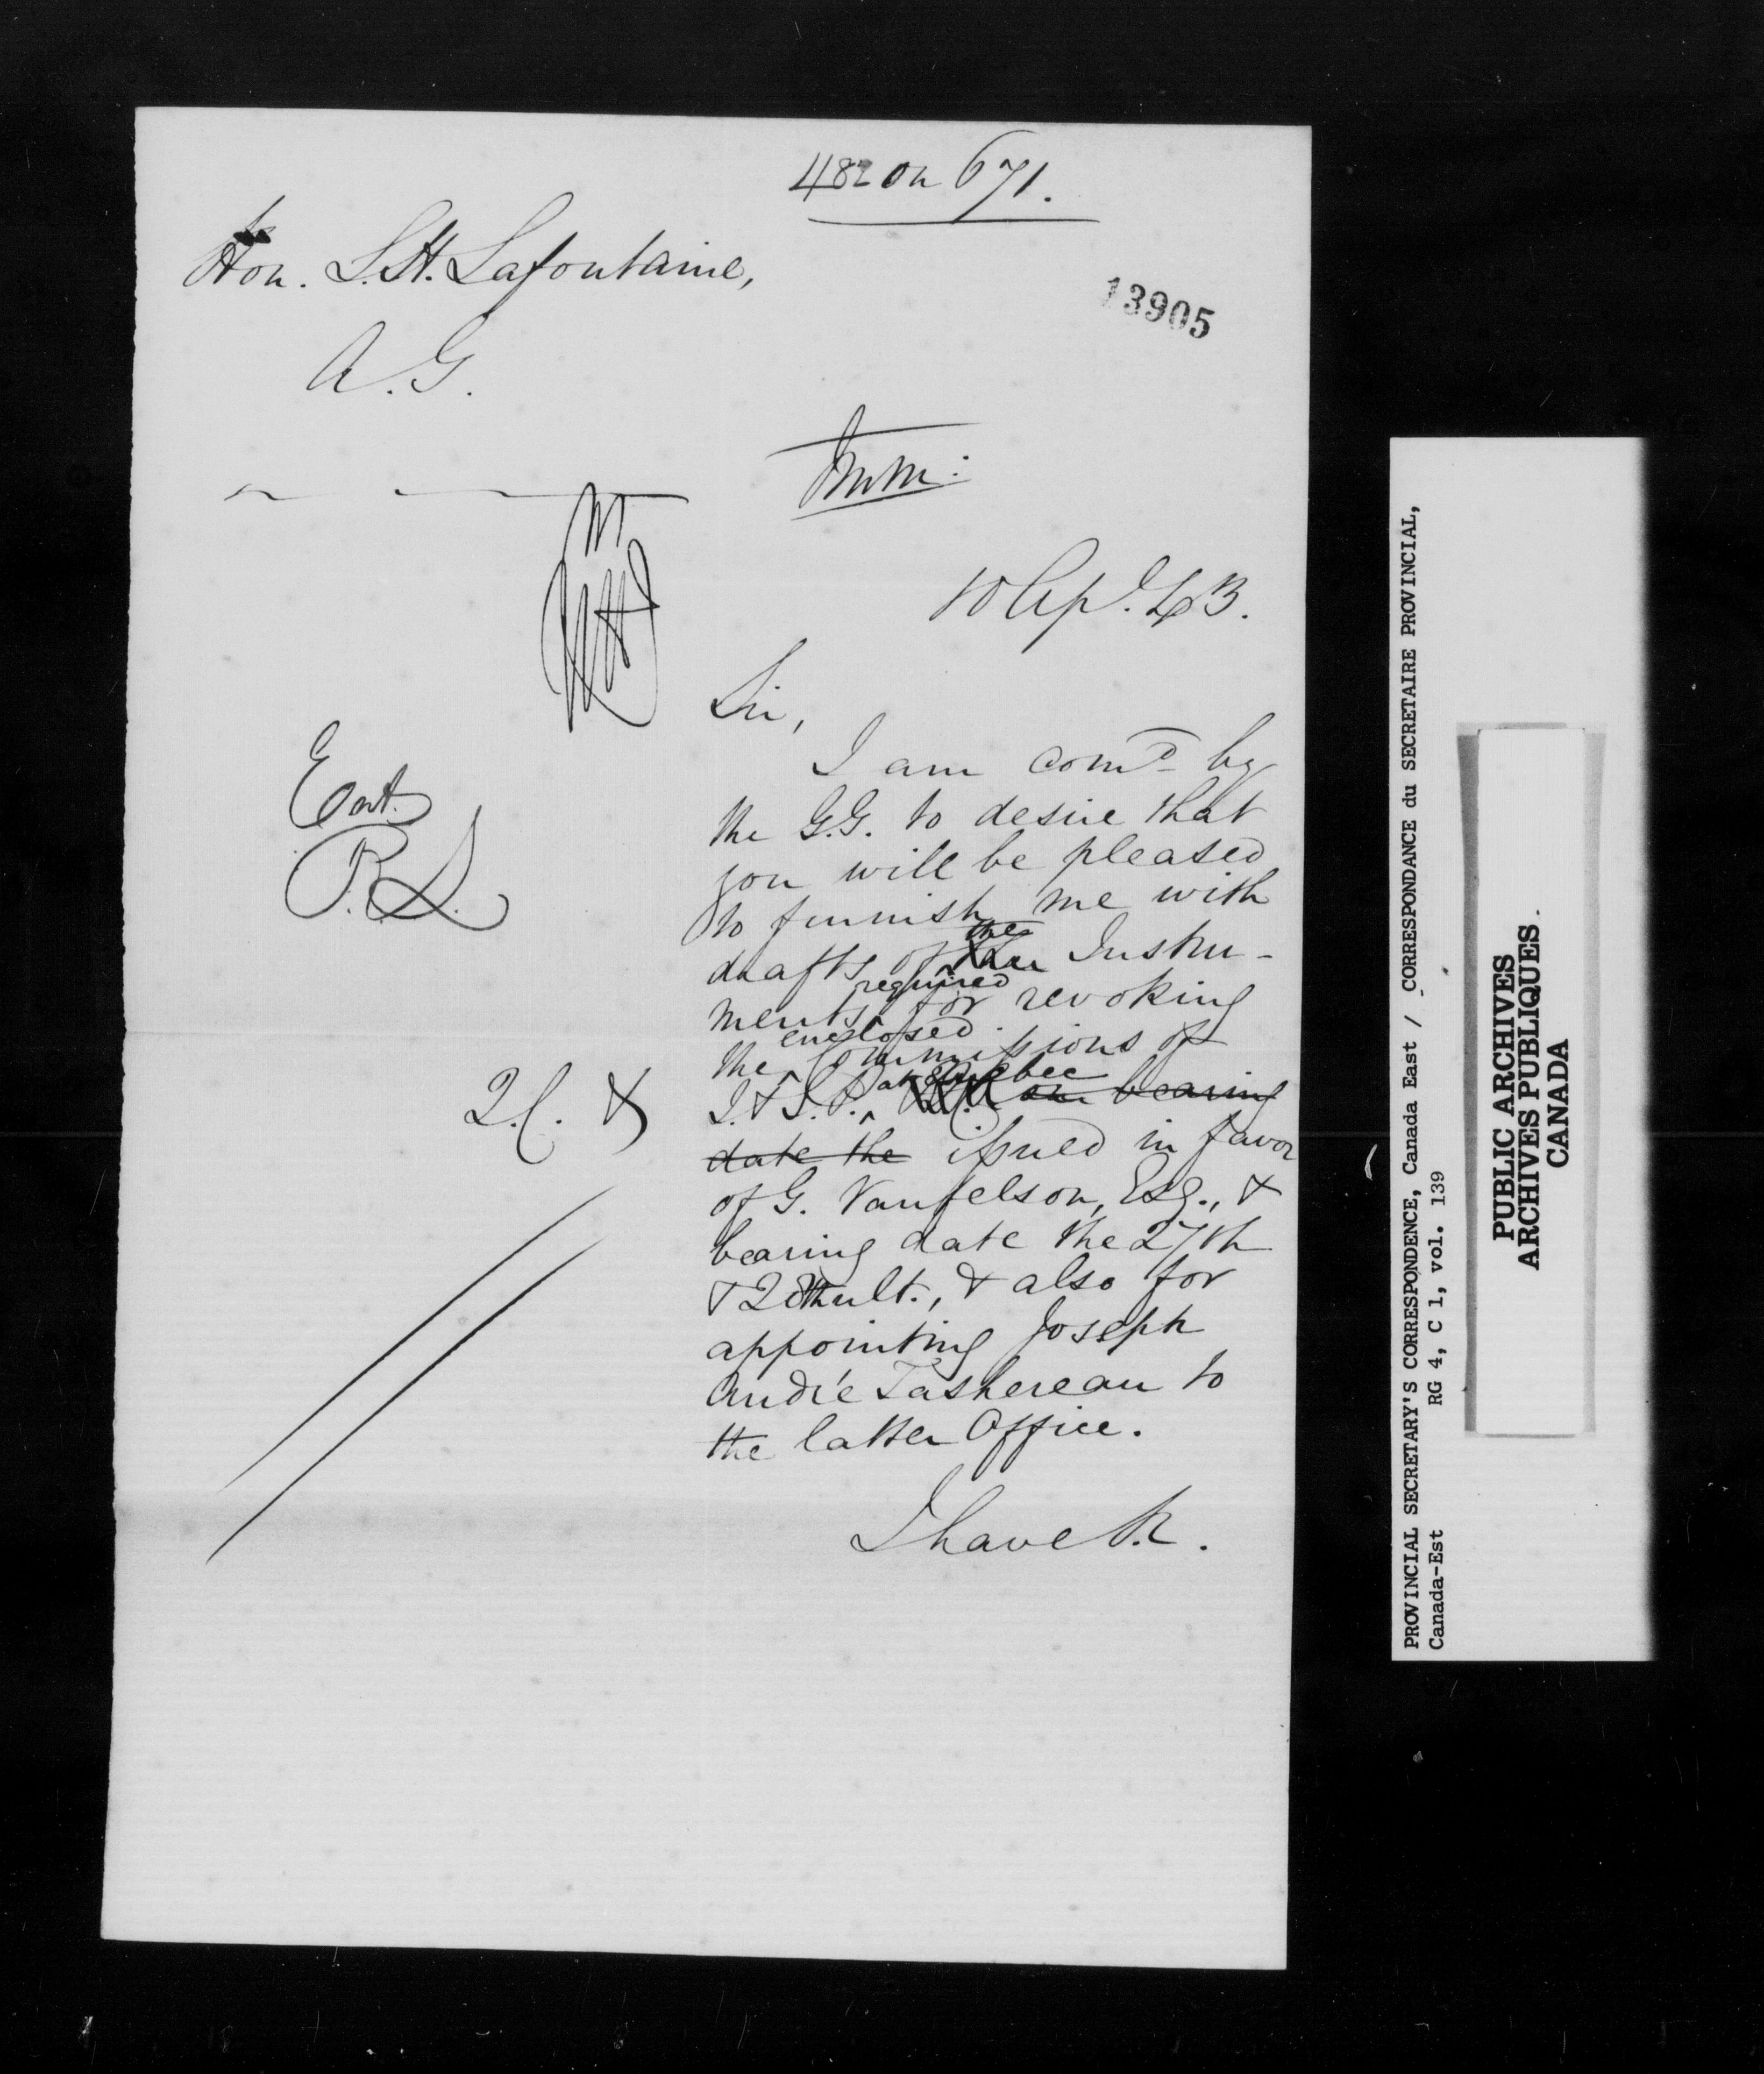 482 on 671.
Hon. L.H. Lafontaine,
13905
A.G.
Imm:
10 Apl. 43.
Sir,
I am comd by
the G.G. to desire that
you will be pleased
Ent.
to furnish me with
P.S.
the
drafts of Instru-
required
ments for revoking
enclosed
the Commissions of
at Quebec
Q.C. &
I. & S.P. bearing
date the issued in favor
of G. Vanfelson, Esq., &
bearing date the 27th
& 28th ult., & also for
appointing Joseph
André Tashereau to
the latter Office.
I have &c.
PROVINCIAL SECRETARY'S CORRESPONDENCE, Canada East / CORRESPONDANCE du SECRETAIRE PROVINCIAL,
Canada-Est RG 4, C 1, vol. 139
PUBLIC ARCHIVES
ARCHIVES PUBLIQUES
CANADA